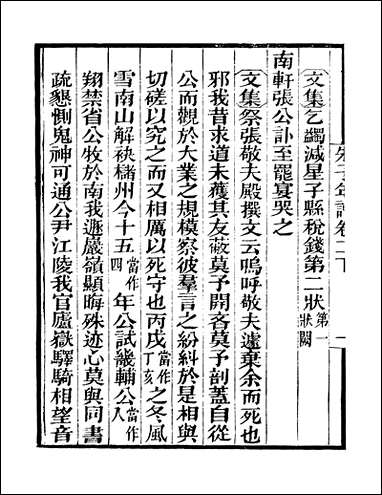 朱子年譜卷二下　一
文集乞蠲減星子縣稅錢第二狀第一狀闕
南軒張公訃至罷宴哭之
文集祭張敬夫殿撰文云嗚呼敬夫遽棄余而死也
邪我昔求道未獲其友蔽莫予開吝莫予剖蓋自從
公而觀於大業之規模察彼羣言之紛糾於是相與
切磋以究之而又相厲以死守也丙戌當作丁亥之冬風
雪南山解袂櫧州今十五當作四年公試畿輔公當作入
翔禁省公牧於南我遯巖嶺顯晦殊迹心莫與同書
疏懇惻鬼神可通公尹江陵我官廬嶽驛騎相望音